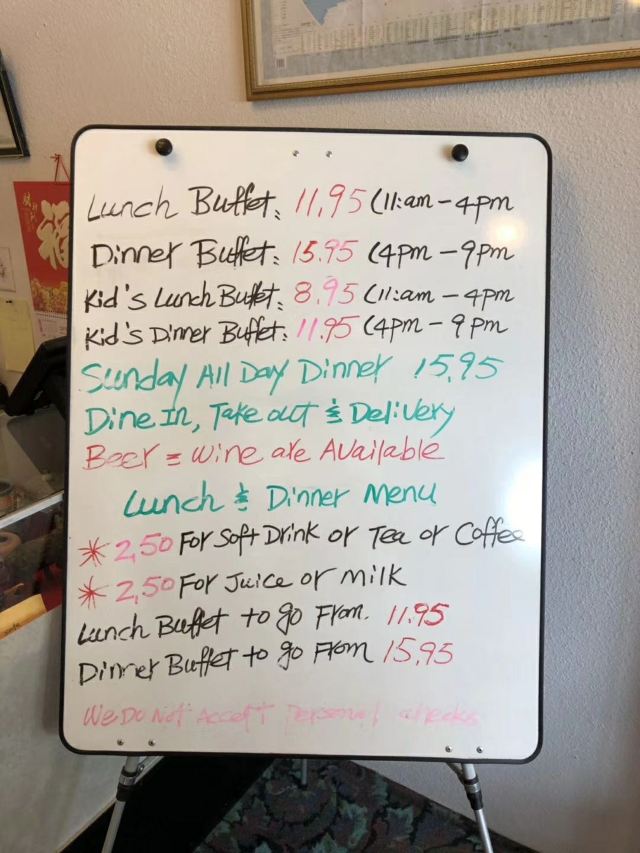 Lunch Buffet: 11.95 (11:am - 4pm
Dinner Buffet: 15.95 (4pm - 9pm
Kid's Lunch Buffet: 8.95 (11:am - 4pm
Kid's Dinner Buffet: 11.95 (4pm - 9pm
Sunday All Day Dinner 15.95
Dine In, Take out & Delivery
Beer = wine are Available
Lunch & Dinner Menu
* 2.50 For Soft Drink or Tea or Coffee
* 2.50 For Juice or milk
Lunch Buffet to go From. 11.95
Dinner Buffet to go From 15.95
We Do Not Accept personal checks
福